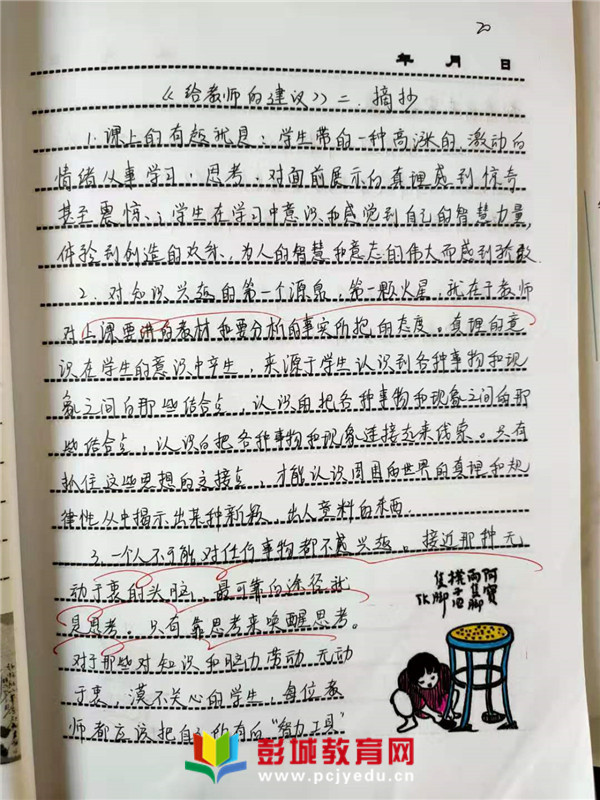 20
年 月 日
《给教师的建议》二.摘抄
1.课上的有趣就是:学生带的一种高涨的、激动的
情绪从事学习、思考,对面前展示的真理感到惊奇
甚至震惊;学生在学习中意识和感觉到自己的智慧力量,
体验到创造的欢乐,为人的智慧和意志的伟大而感到骄傲.
2.对知识兴趣的第一个源泉,第一颗火星,就在于教师
对上课要讲的教材和要分析的事实所抱的态度。真理的意
识在学生的意识中产生,来源于学生认识到各种事物和现
象之间的那些结合点,认识的把各种事物和现象之间的那
些结合点,认识的把各种事物和现象连接起来线索。只有
抓住这些思想的交接点,才能认识周围的世界的真理和规
律性从中揭示出某种新颖,出人意料的东西.
3.一个人不可能对任何事物都不感兴趣。接近那种无
动于衷的头脑,最可靠的途径就
是思考。只有靠思考来唤醒思考。
对于那些对知识和脑力劳动无动
于衷,漠不关心的学生,每位教
师都应该把自己所有的"智力工具"
彭城教育网
www.pcjyedu.cn